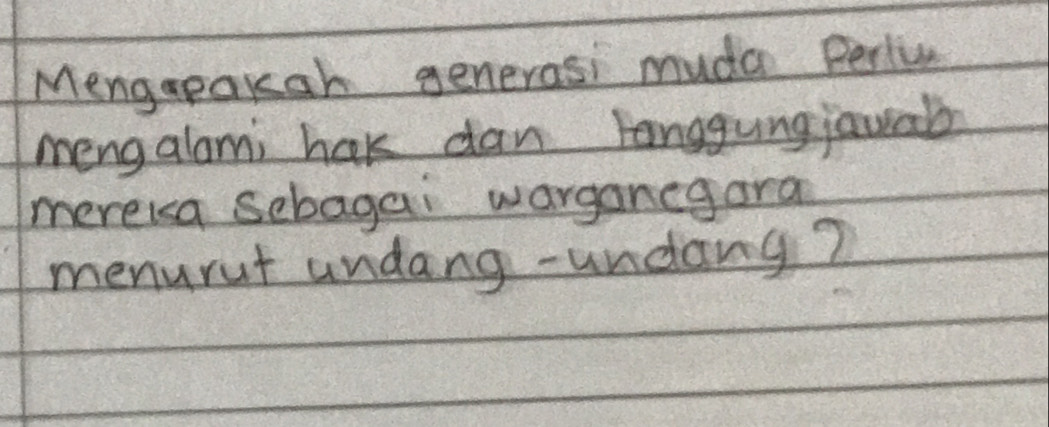 Mengapakah generasi muda perlu
mengalami hak dan tanggungjawab
mereka sebagai warganegara
menurut undang-undang?